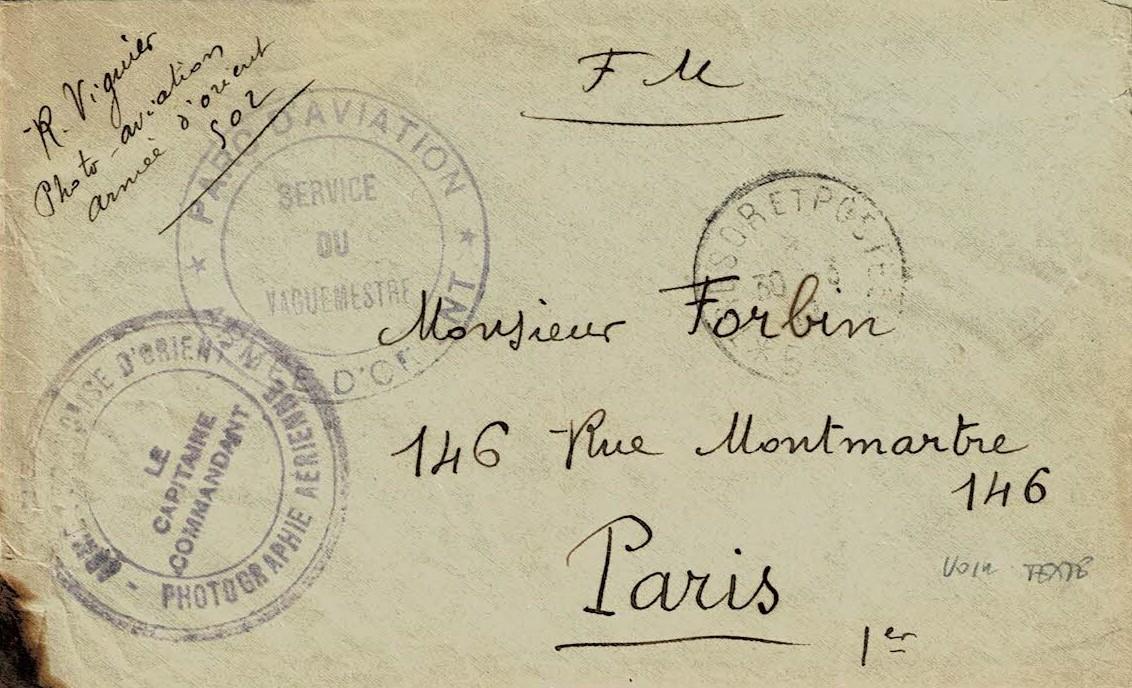 R. Viguier
Photo-aviation
armée d'orient
502
F M
PARC D'AVIATION
SERVICE
DU
VAGUEMESTRE
D'ORIENT
TRESOR ET POSTES
30
Monsieur Forbin
146 Rue Montmartre
146
Paris
1er
D'ORIENT
PHOTOGRAPHIE AÉRIENNE
LE
CAPITAINE
COMMANDANT
VOIR TEXTE